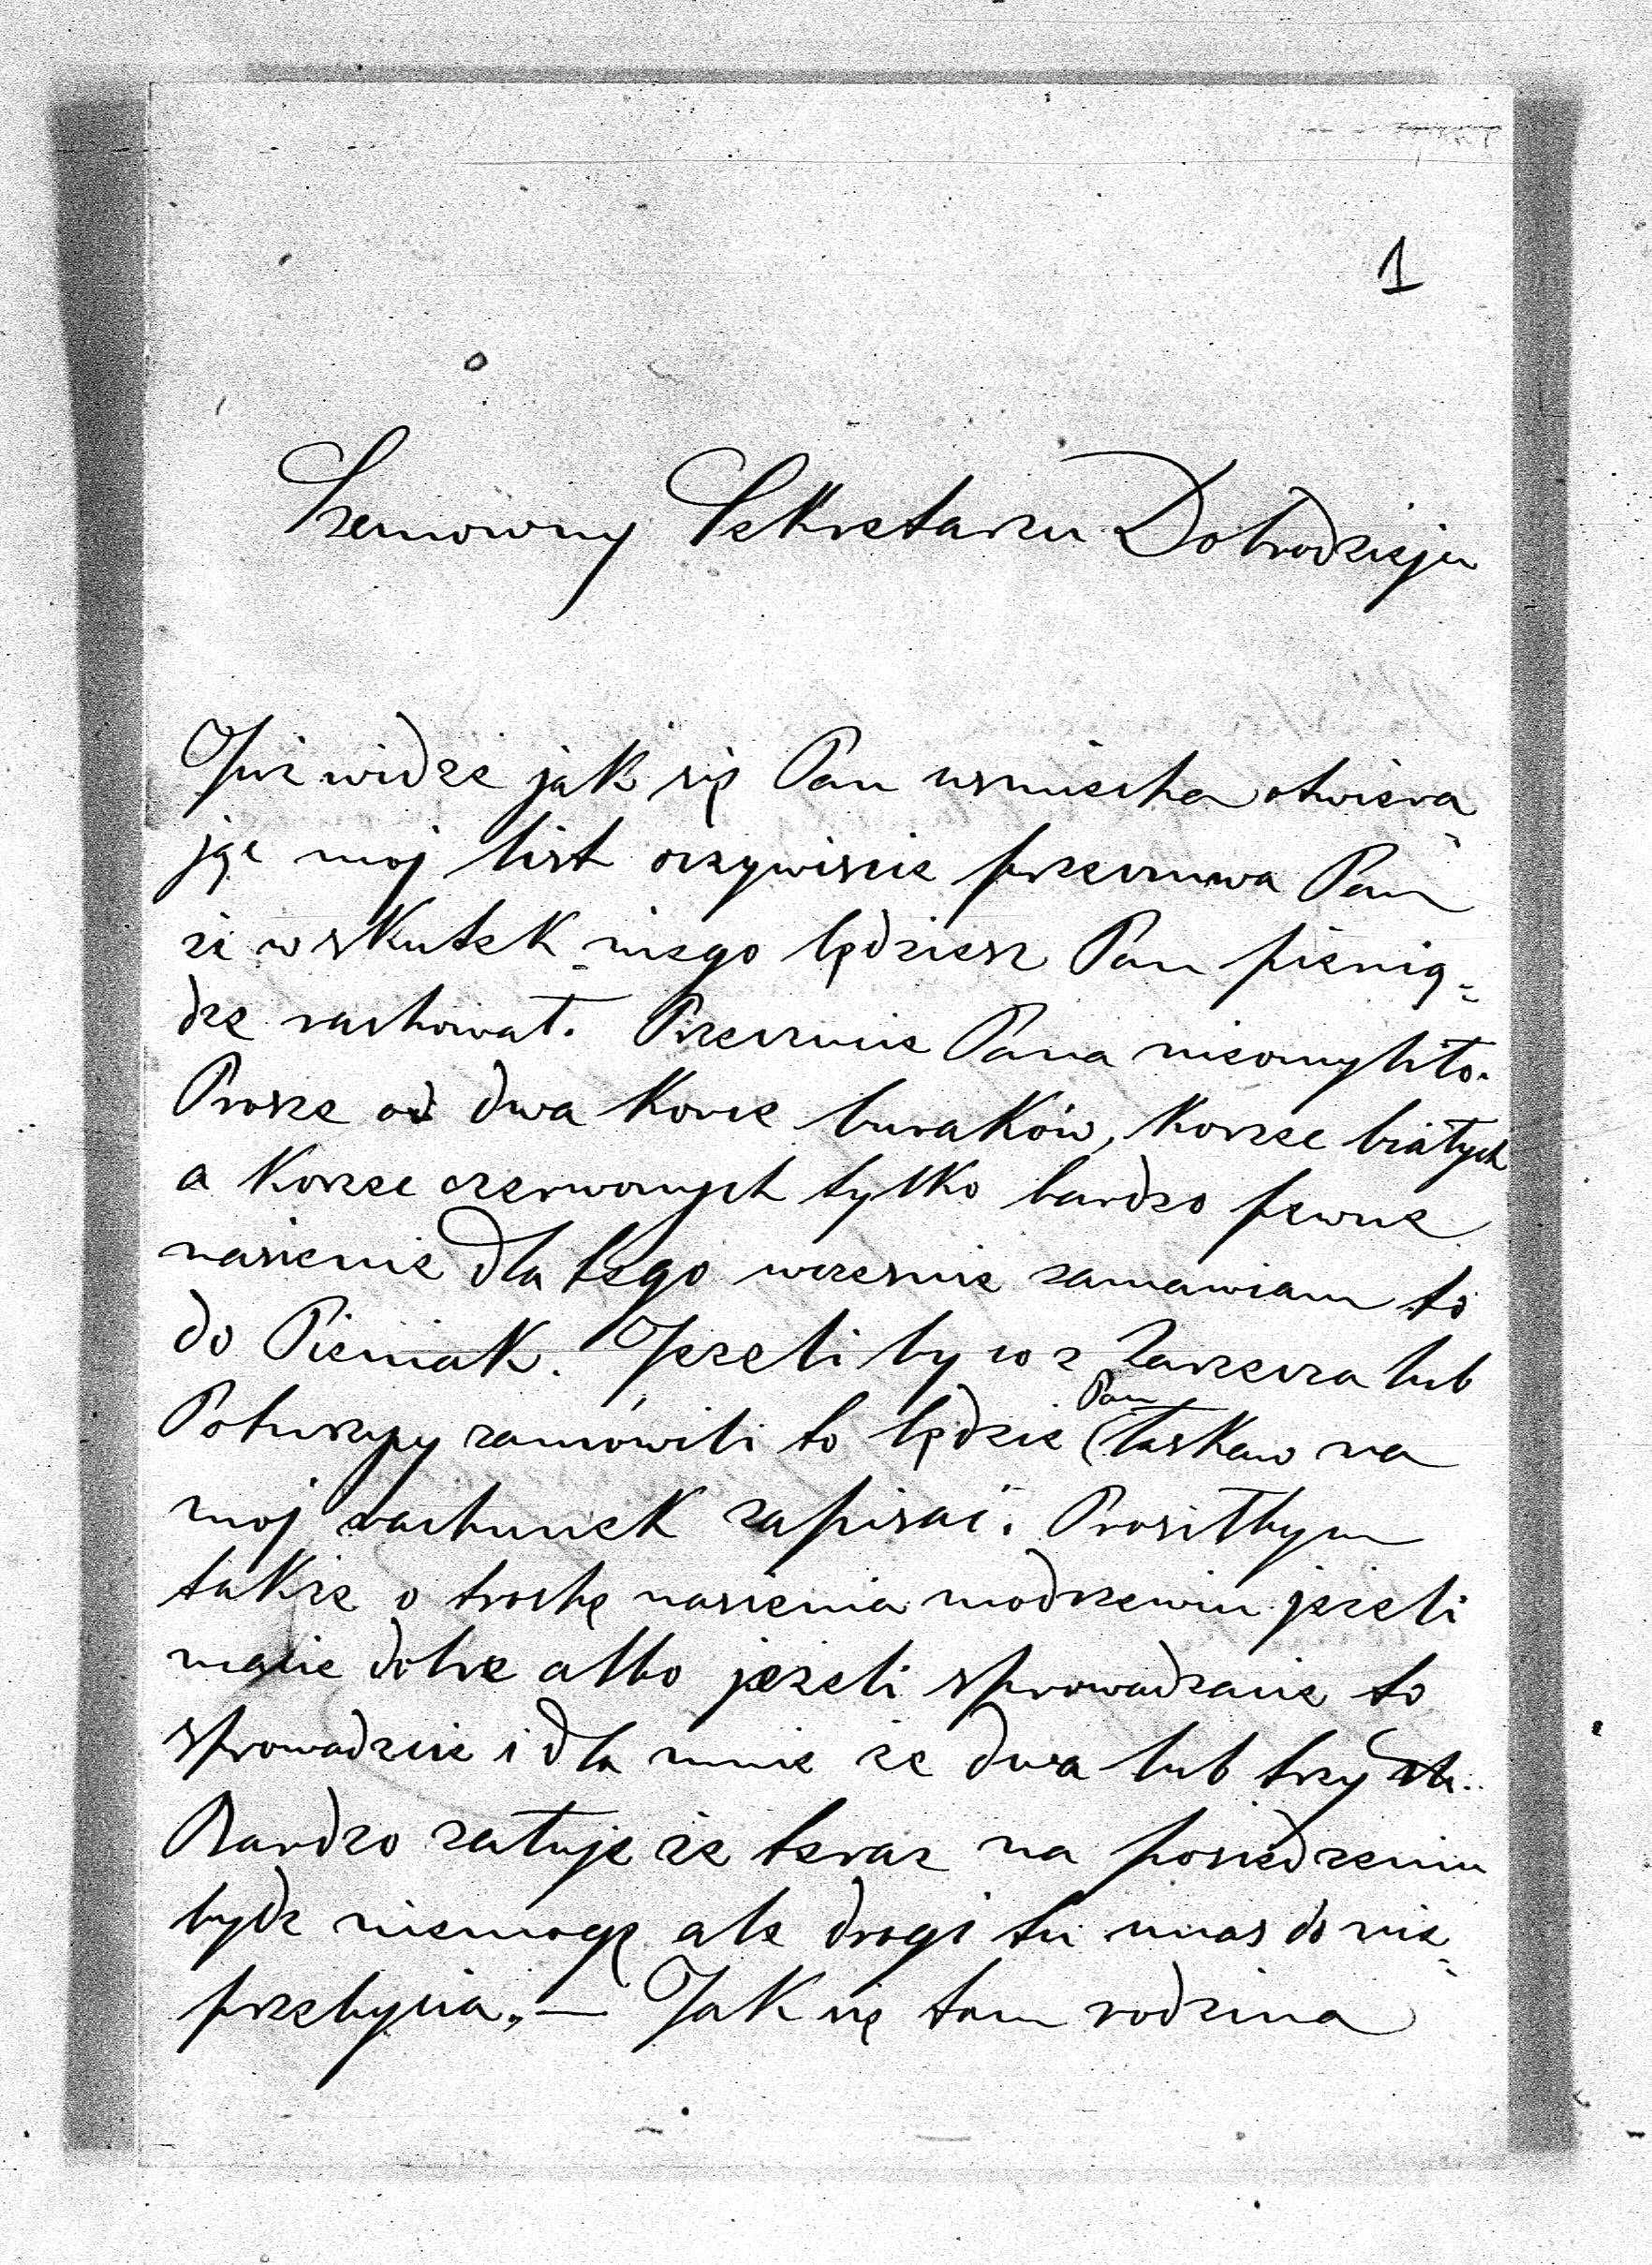 1
Szanowny Sekretarzu Dobrodzieju
Już widze jak się Pan usmiecha otwiera
jąc moj list oczywiscie przeczuwa Pan
że w skutek niego będziesz Pan pienią-
dze rachował. Przeczucie Pana nieomyliło.
Prosze o dwa korce buraków, korzec białych
a korzec czerwonych tylko bardzo pewne
nasienie dla tego wczesnie zamawiam to
do Pieniak. Jezeli by co z Zarzecza lub
Poturzycy zamówili to będzie Pan łaskaw na
moj rachunek zapisać. Prosiłbym
także o trochę nasienia modrzewiu jeżeli
macie dobre albo jeżeli sprowadzacie to
sprowadzcie i dla mnie ze dwa lub trzy
Bardzo załuje że teraz na posiedzeniu
bydz niemogę ale drogi tu unas do nie-
przebycia. — Jak się tam rodzina